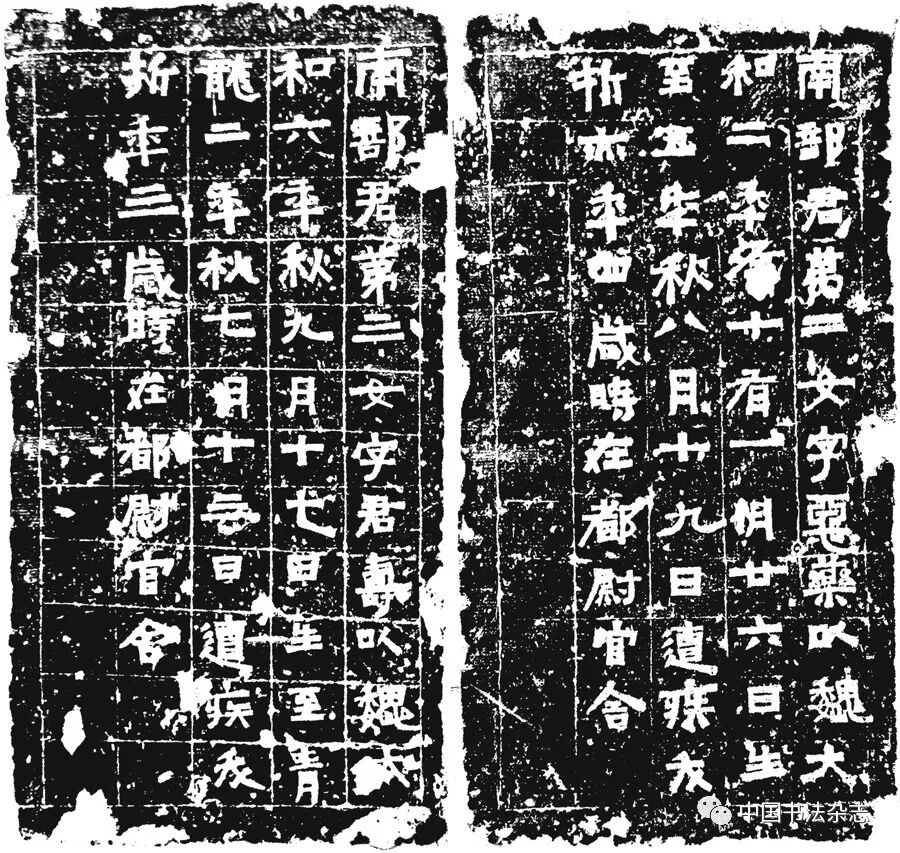 南部君第二女字惡藥以魏大
和二年十有一月廿六日生
至五年秋八月十九日遭疾夭
折亦年四歲時在都尉官舍
南部君第三女字君壽以魏大
和六年秋九月十七日生至青
龍二年秋七月十日遭疾夭
折年三歲時在都尉官舍
中国书法杂志